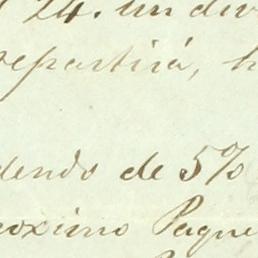 24. un div
repartirá, h
dendo de 5%
roximo Paque